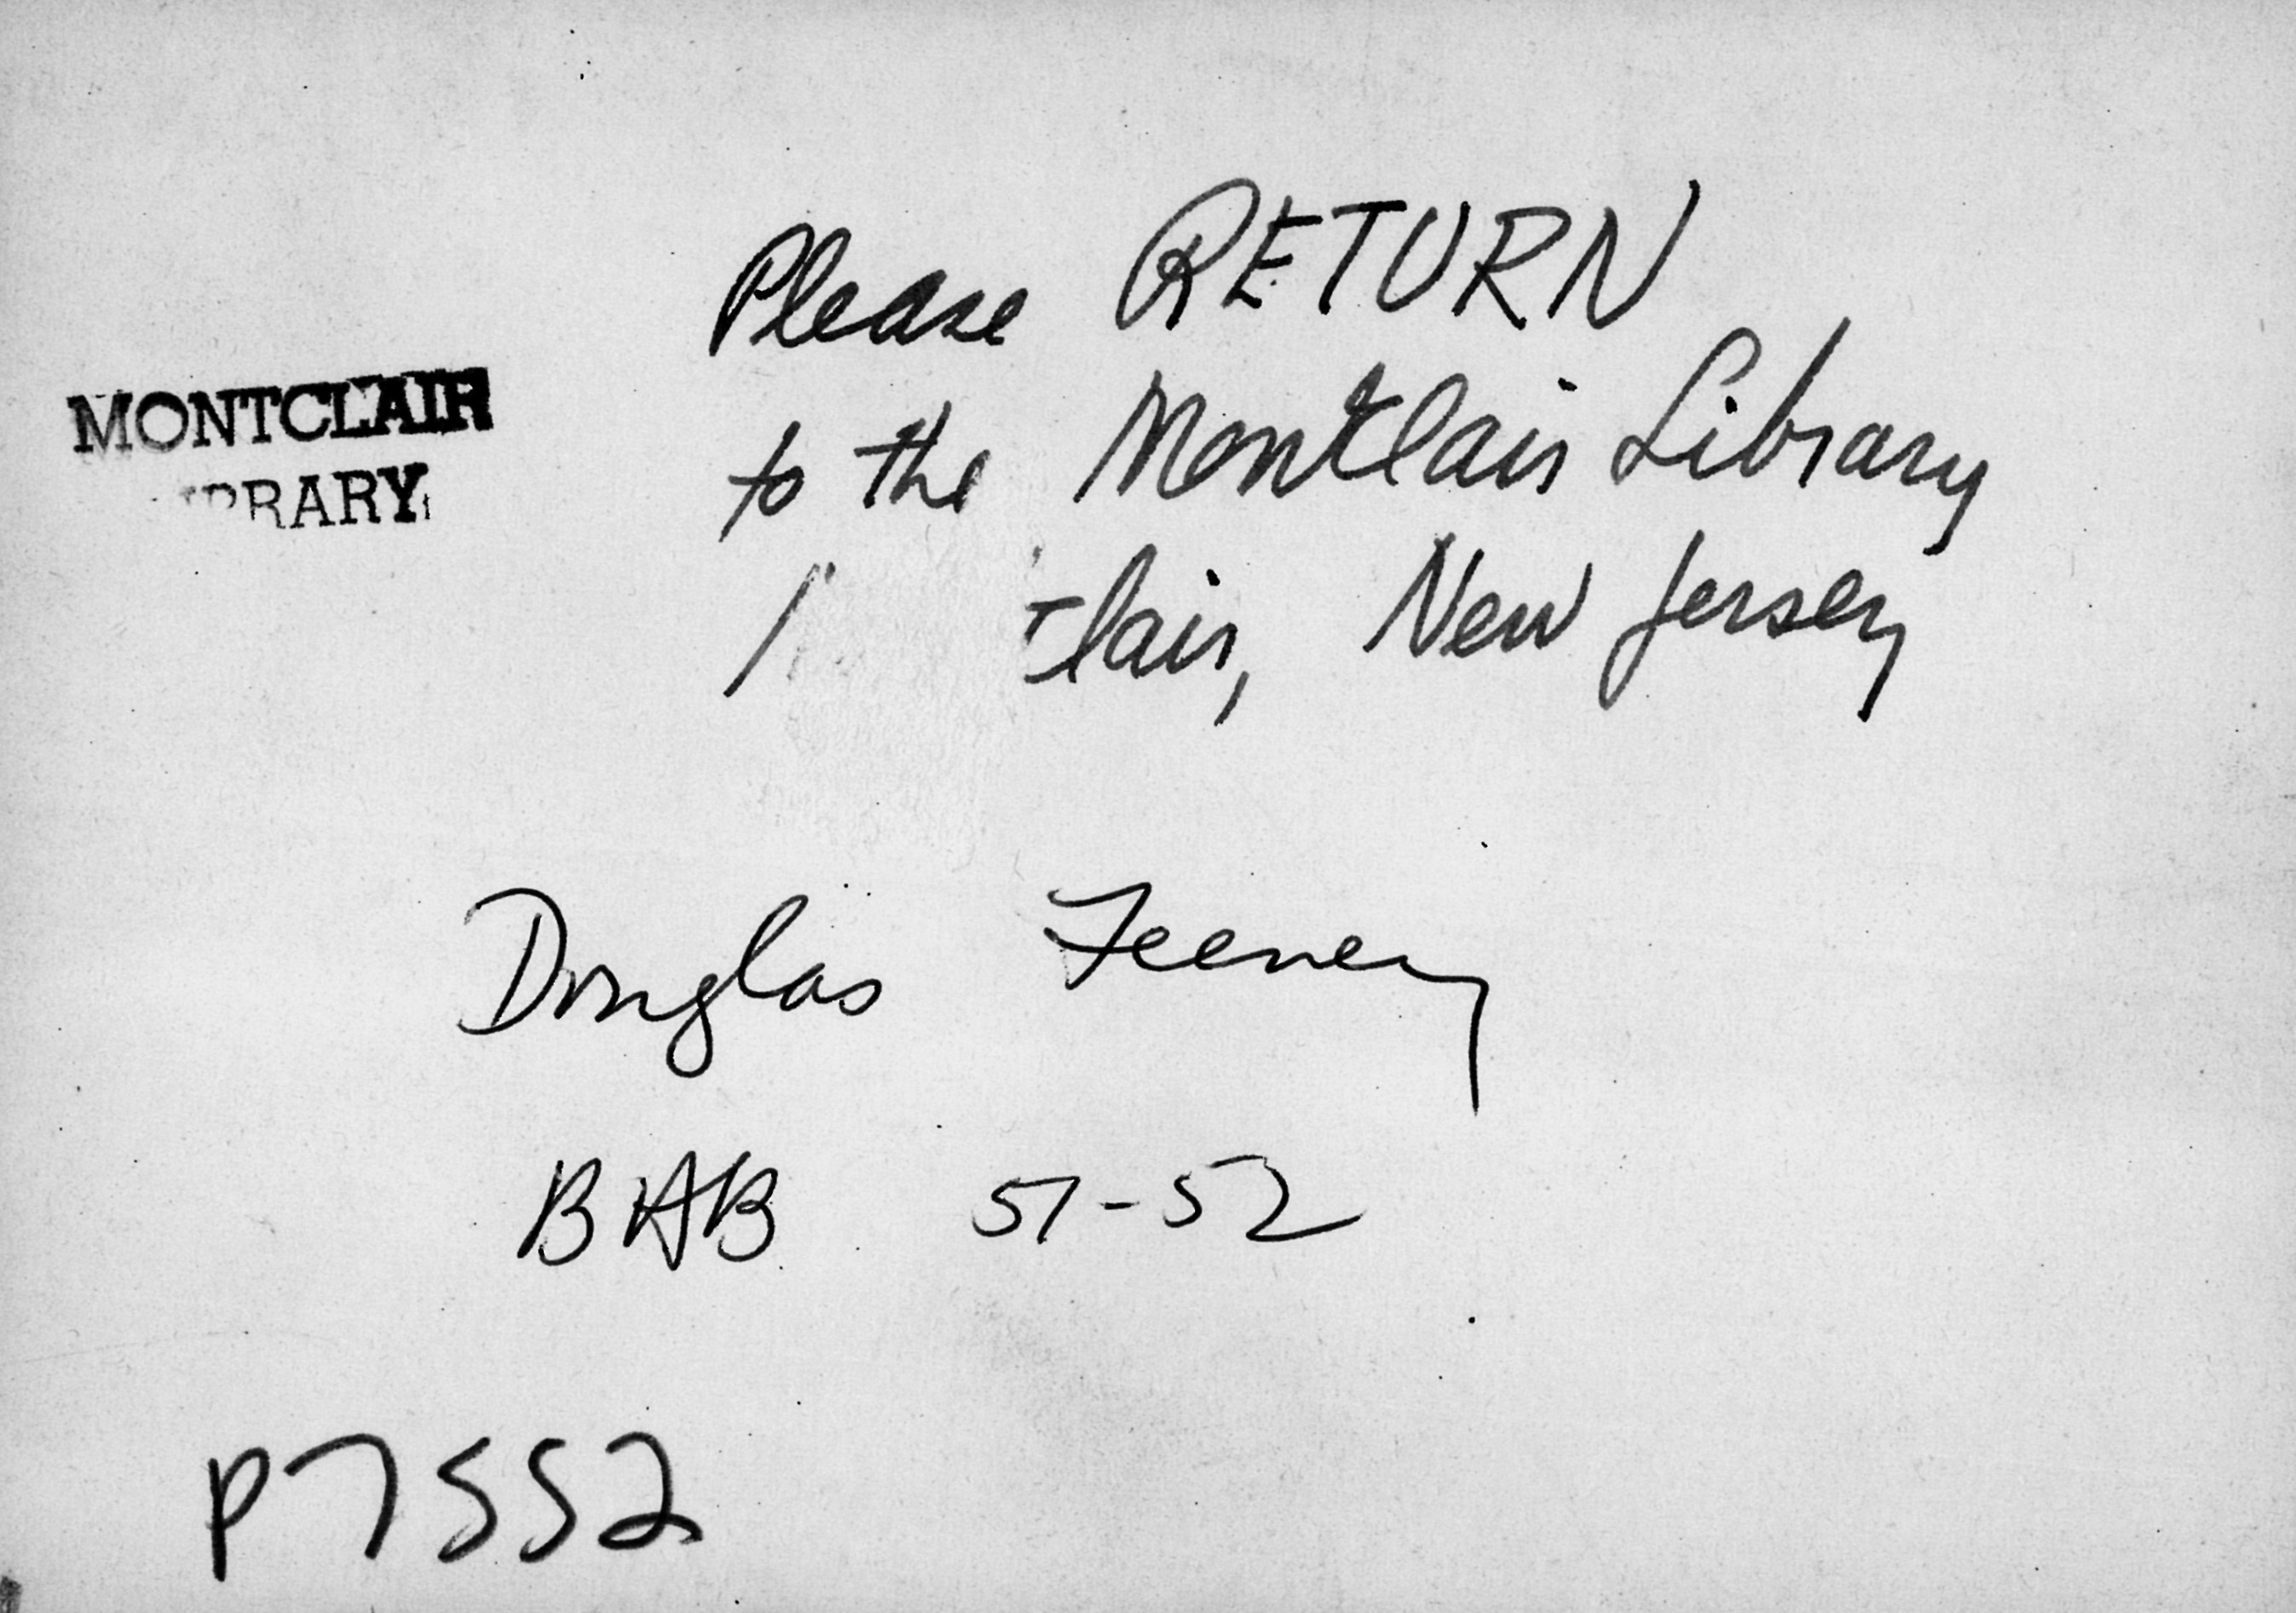 MONTCLAIR
LIBRARY
Please RETURN
to the Montclair Library
Montclair, New Jersey
Douglas Feeney
BAB 51-52
P7552